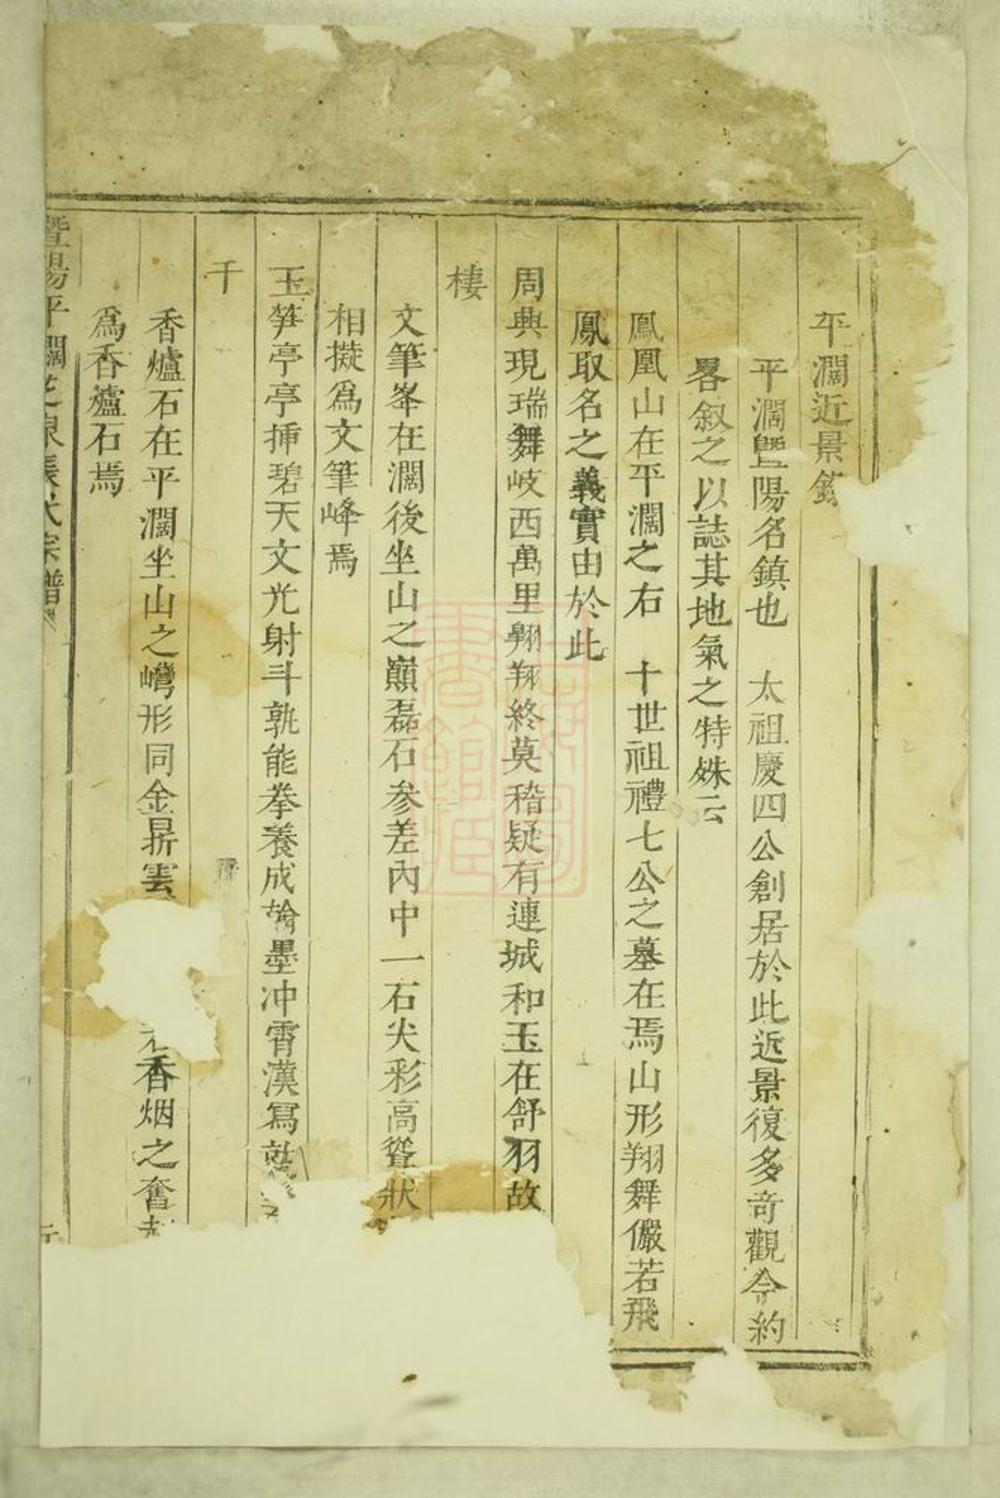 平濶近景
平濶曁陽名鎮也　太祖慶四公創居於此近景復多奇觀今約
畧叙之以誌其地氣之特殊云
鳳凰山在平濶之右　十世祖禮七公之墓在焉山形翔舞儼若飛
鳳取名之義實由於此
周興現瑞舞岐西萬里翱翔終莫稽疑有連城和玉在舒羽故
棲
文筆峯在濶後坐山之巔磊石參差內中一石尖彩高聳狀
相擬爲文筆峰焉
玉笋亭亭揷碧天文光射斗孰能拳養成翰墨冲霄漢寫就
千
香爐石在平濶坐山之㠣形同金鼎雲
香烟之奮起
爲香爐石焉
曁陽平濶
宗譜